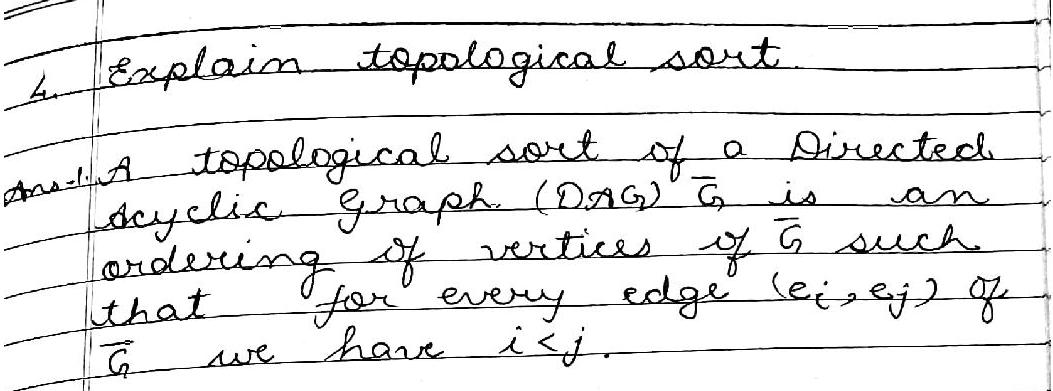 4. Explain topological sort.
Ans-1. A topological sort of a Directed
Acyclic Graph. (DAG) G is an
ordering of vertices of G such
that for every edge (ei, ej) of
G we have i<j.